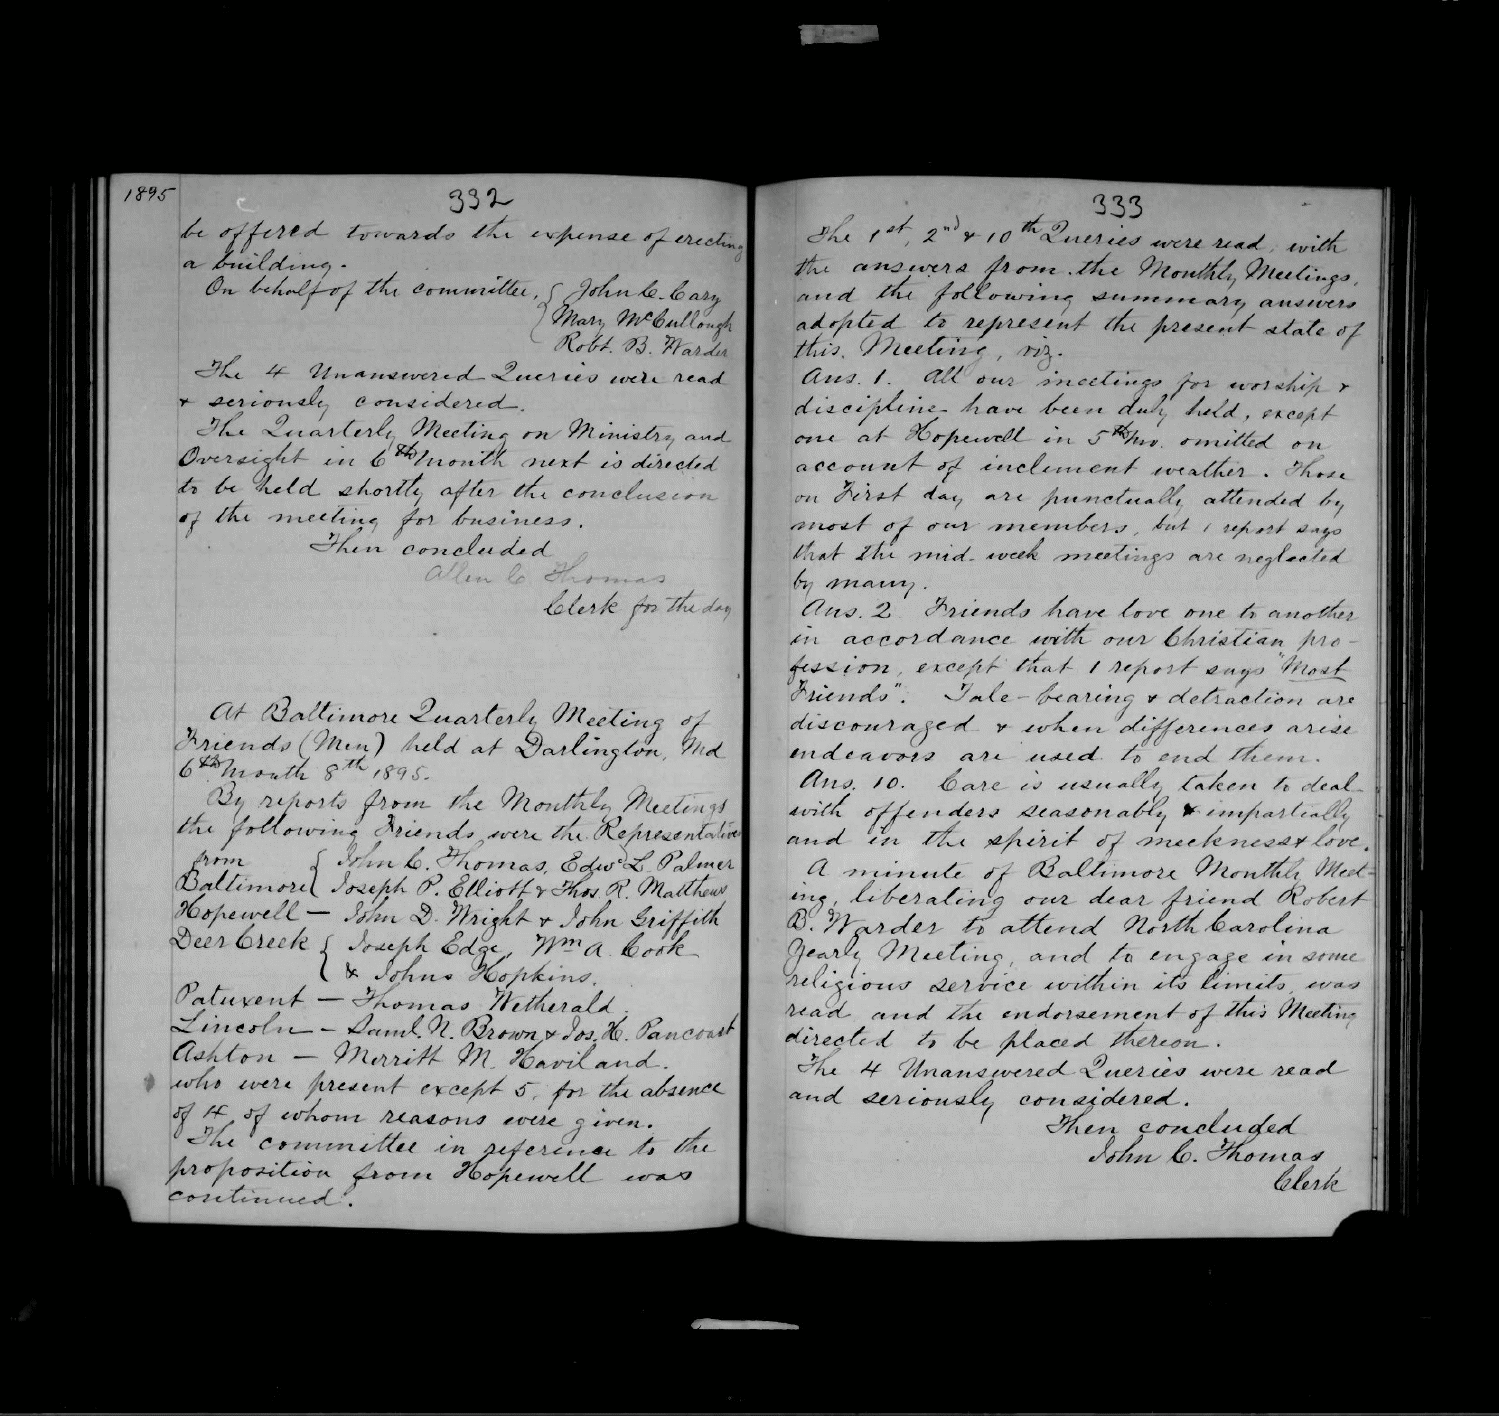 1895
332
be offered towards the expense of erecting
a building.
On behalf of the committee, { John C. Cary
Mary McCullough
Robt. B. Warder
The 4 Unanswered Queries were read
& seriously considered.
The Quarterly Meeting on Ministry and
Oversight in 6th month next is directed
to be held shortly after the conclusion
of the meeting for business.
Then concluded
Allen C. Thomas
Clerk for the day
At Baltimore Quarterly Meeting of
Friends (Men) held at Darlington, Md
6th month 8th 1895.
By reports from the Monthly Meetings
the following Friends were the Representatives
from { John C. Thomas, Edwd L. Palmer
Baltimore { Joseph P. Elliott & Thos. R. Matthews
Hopewell — John D. Wright & John Griffith
Deer Creek { Joseph Edge, Wm A. Cook
& Johns Hopkins.
Patuxent — Thomas Wetherald
Lincoln — Saml. N. Brown & Jos. H. Pancoast
Ashton — Merritt M. Haviland.
who were present except 5, for the absence
of 4 of whom reasons were given.
The committee in reference to the
proposition from Hopewell was
continued.
333
The 1st, 2nd & 10th Queries were read, with
the answers from the Monthly Meetings,
and the following summary answers
adopted to represent the present state of
this Meeting, viz.
Ans. 1. All our meetings for worship &
discipline have been duly held, except
one at Hopewell in 5th mo. omitted on
account of inclement weather. Those
on First day are punctually attended by
most of our members, but 1 report says
that the mid-week meetings are neglected
by many.
Ans. 2 Friends have love one to another
in accordance with our Christian pro-
fession, except that 1 report says "Most
Friends". Tale-bearing & detraction are
discouraged & when differences arise
endeavors are used to end them.
Ans. 10. Care is usually taken to deal
with offenders seasonably & impartially
and in the spirit of meekness & love.
A minute of Baltimore Monthly Meet-
ing, liberating our dear friend Robert
B. Warder to attend North Carolina
Yearly Meeting, and to engage in some
religious service within its limits, was
read and the endorsement of this Meeting
directed to be placed thereon.
The 4 Unanswered Queries were read
and seriously considered.
Then concluded
John C. Thomas
Clerk